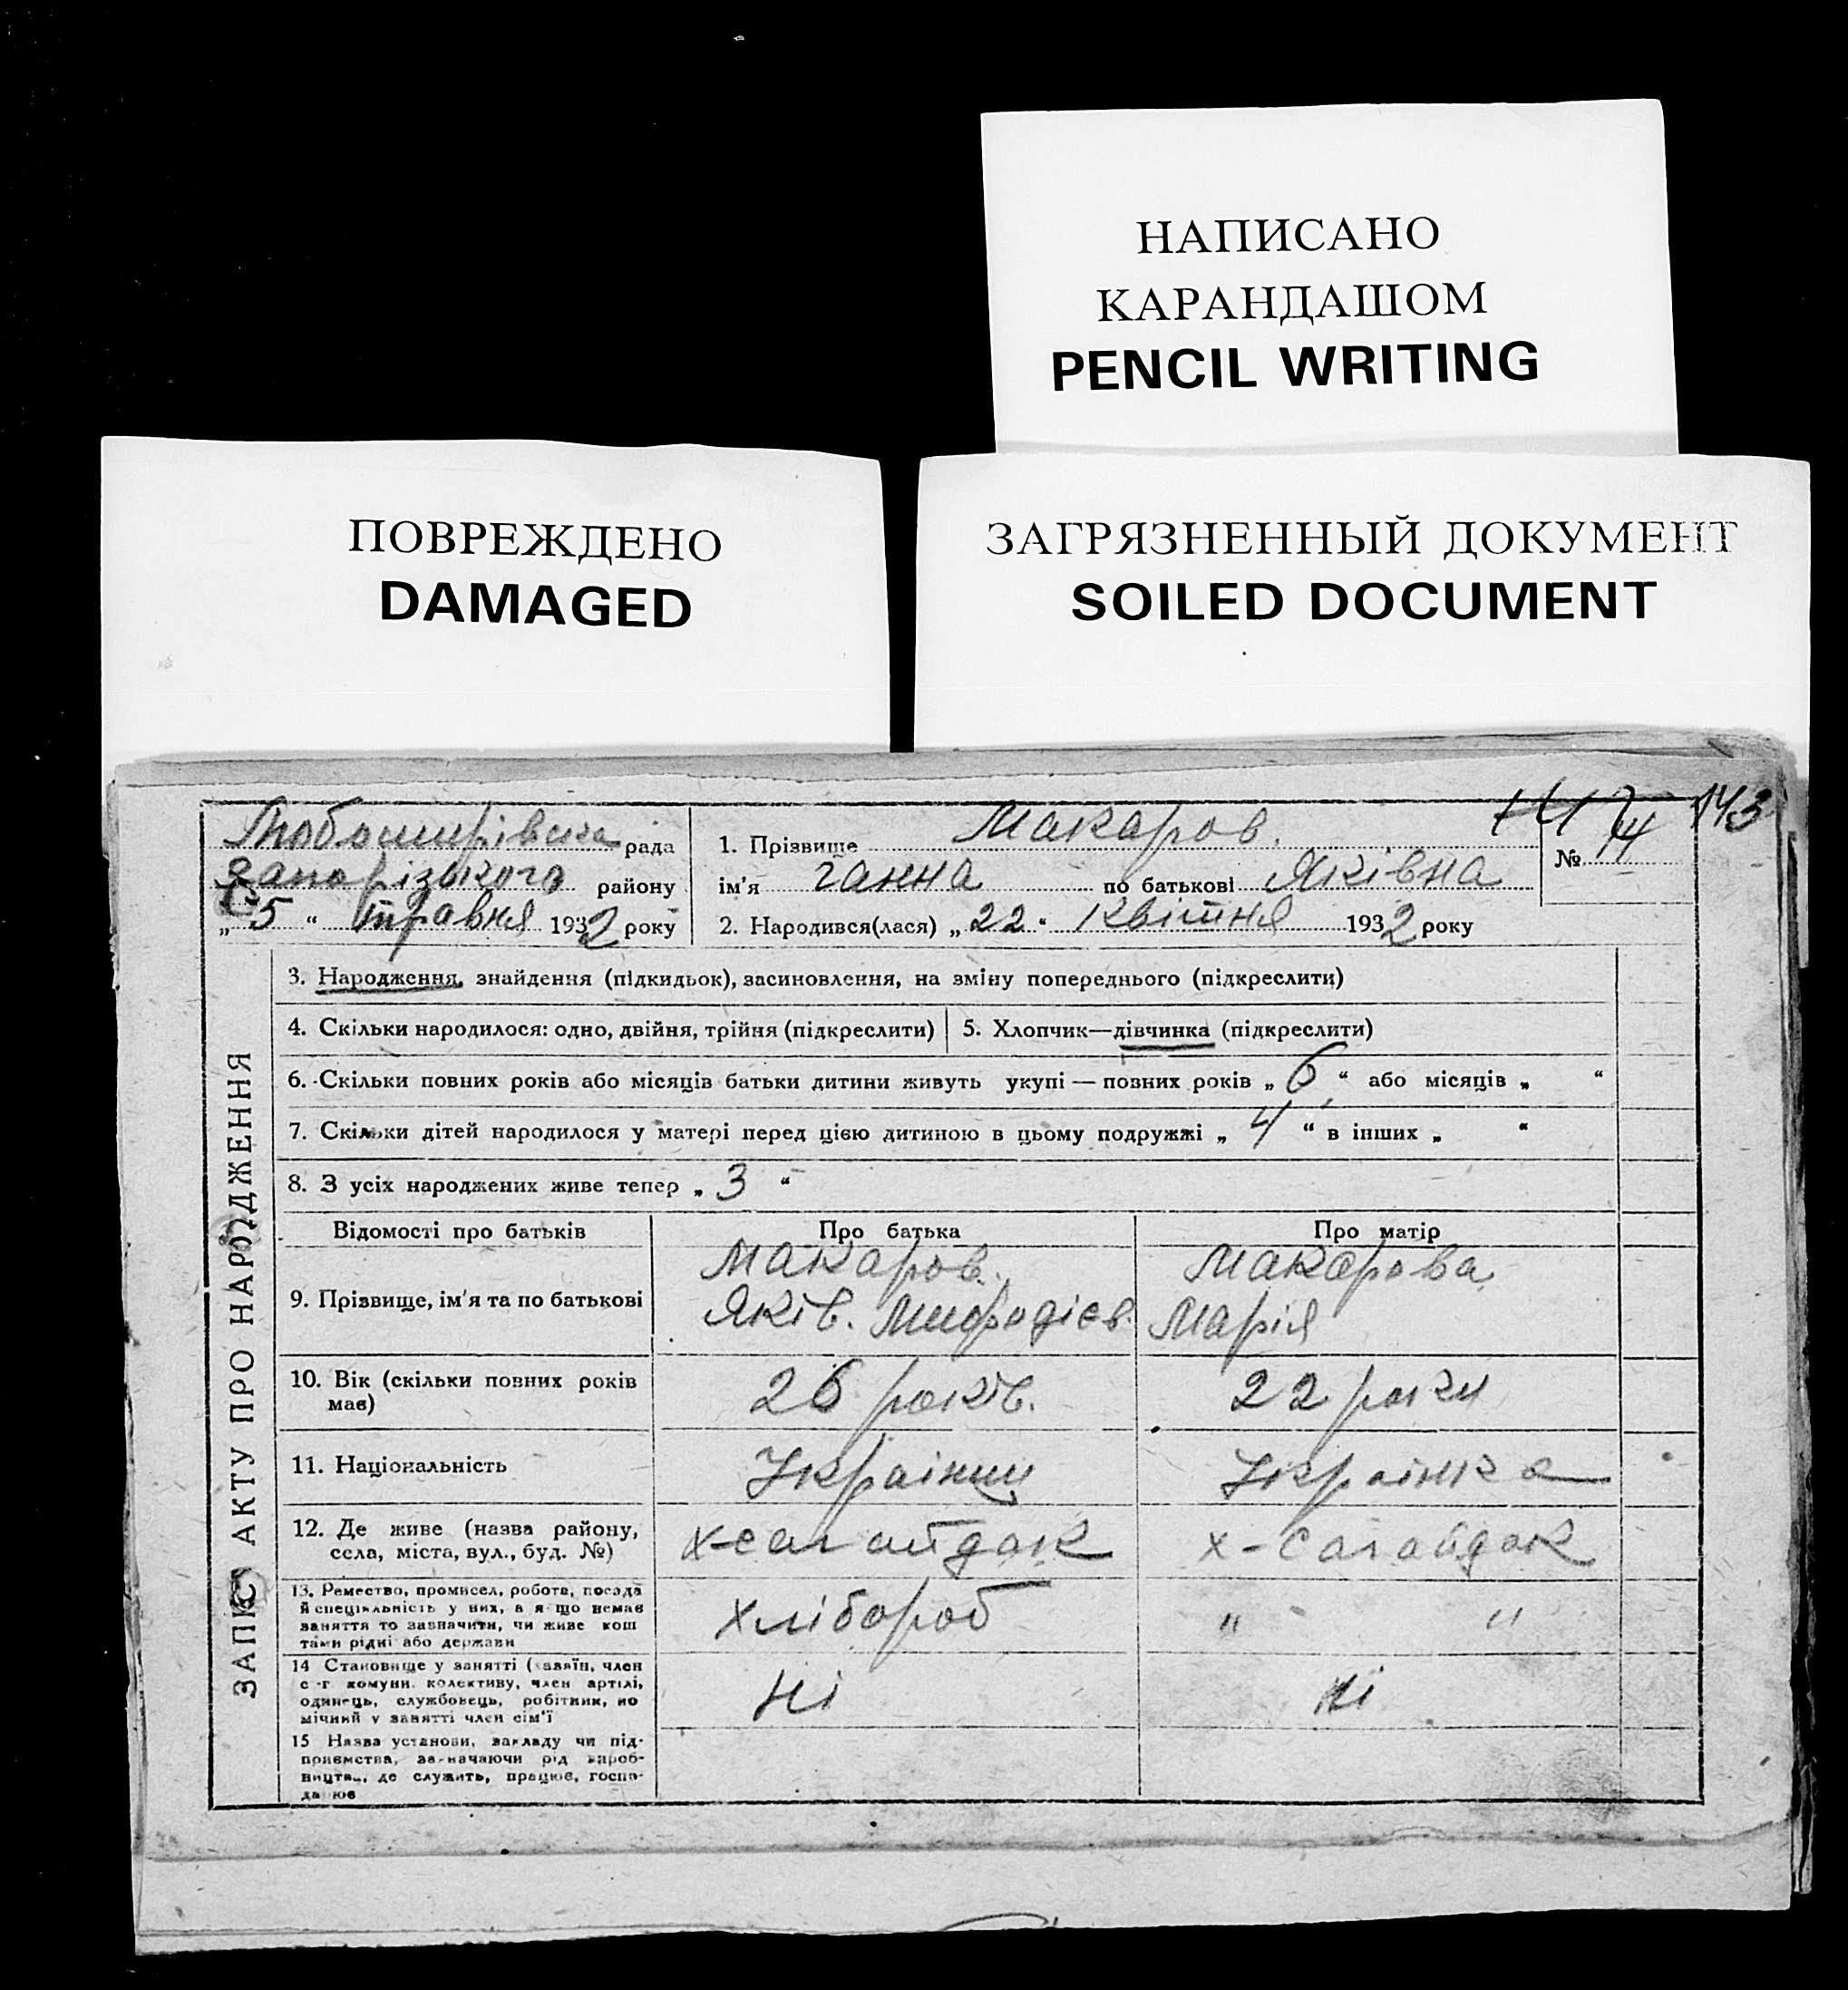 НАПИСАНО
КАРАНДАШОМ
PENCIL WRITING
ПОВРЕЖДЕНО
DAMAGED
ЗАГРЯЗНЕННЫЙ ДОКУМЕНТ
SOILED DOCUMENT
143
Любомирівська рада
Запорізького району
„ 5 “ травня 1932 року
1. Прізвище Макаров.
ім'я Ганна по батькові Яківна
2. Народився(лася) „ 22 “ Квітня 1932 року
№ 14
ЗАПИС АКТУ ПРО НАРОДЖЕННЯ
3. Народження, знайдення (підкидьок), засиновлення, на зміну попереднього (підкреслити)
4. Скільки народилося: одно, двійня, трійня (підкреслити)
5. Хлопчик—дівчинка (підкреслити)
6. Скільки повних років або місяців батьки дитини живуть укупі — повних років „ 6 “ або місяців „ “
7. Скільки дітей народилося у матері перед цією дитиною в цьому подружжі „ 4 “ в інших „ “
8. З усіх народжених живе тепер „ 3 “
Відомості про батьків Про батька Про матір
9. Прізвище, ім'я та по батькові
Макаров.
Яків.
Макарова
Марія
10. Вік (скільки повних років
має)
26 років.
22 роки
11. Національність
Украінец
Украінка
12. Де живе (назва району,
села, міста, вул., буд. №)
х-Сагайдак
х-Сагайдак
13. Ремество, промисел, робота, посада
й спеціяльність у них, а якщо немає
заняття то зазначити, чи живе кош
тами рідні або держави
хлібороб
" "
14 Становище у занятті (хазяїн, член
с -г комуни. колективу, член артілі,
одинець, службовець, робітник, по
мічний у занятті член сім'ї
ні
ні
15 Назва установи, закладу чи під-
приємства, зазначаючи рід вироб-
ництва, де служить, працює, госпо-
дарює